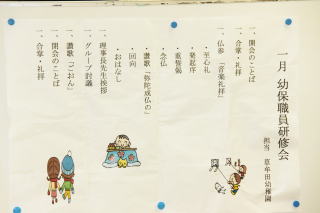 一月 幼保職員研修会
担当 草牟田幼稚園
一、開会のことば
一、合掌・礼拝
一、仏参「音楽礼拝」
・至心礼
・発起序
・重誓偈
・念仏
・讃歌「弥陀成仏の」
・回向
・おはなし
一、理事長先生挨拶
一、グループ討議
一、讃歌「ごおん」
一、閉会のことば
一、合掌・礼拝